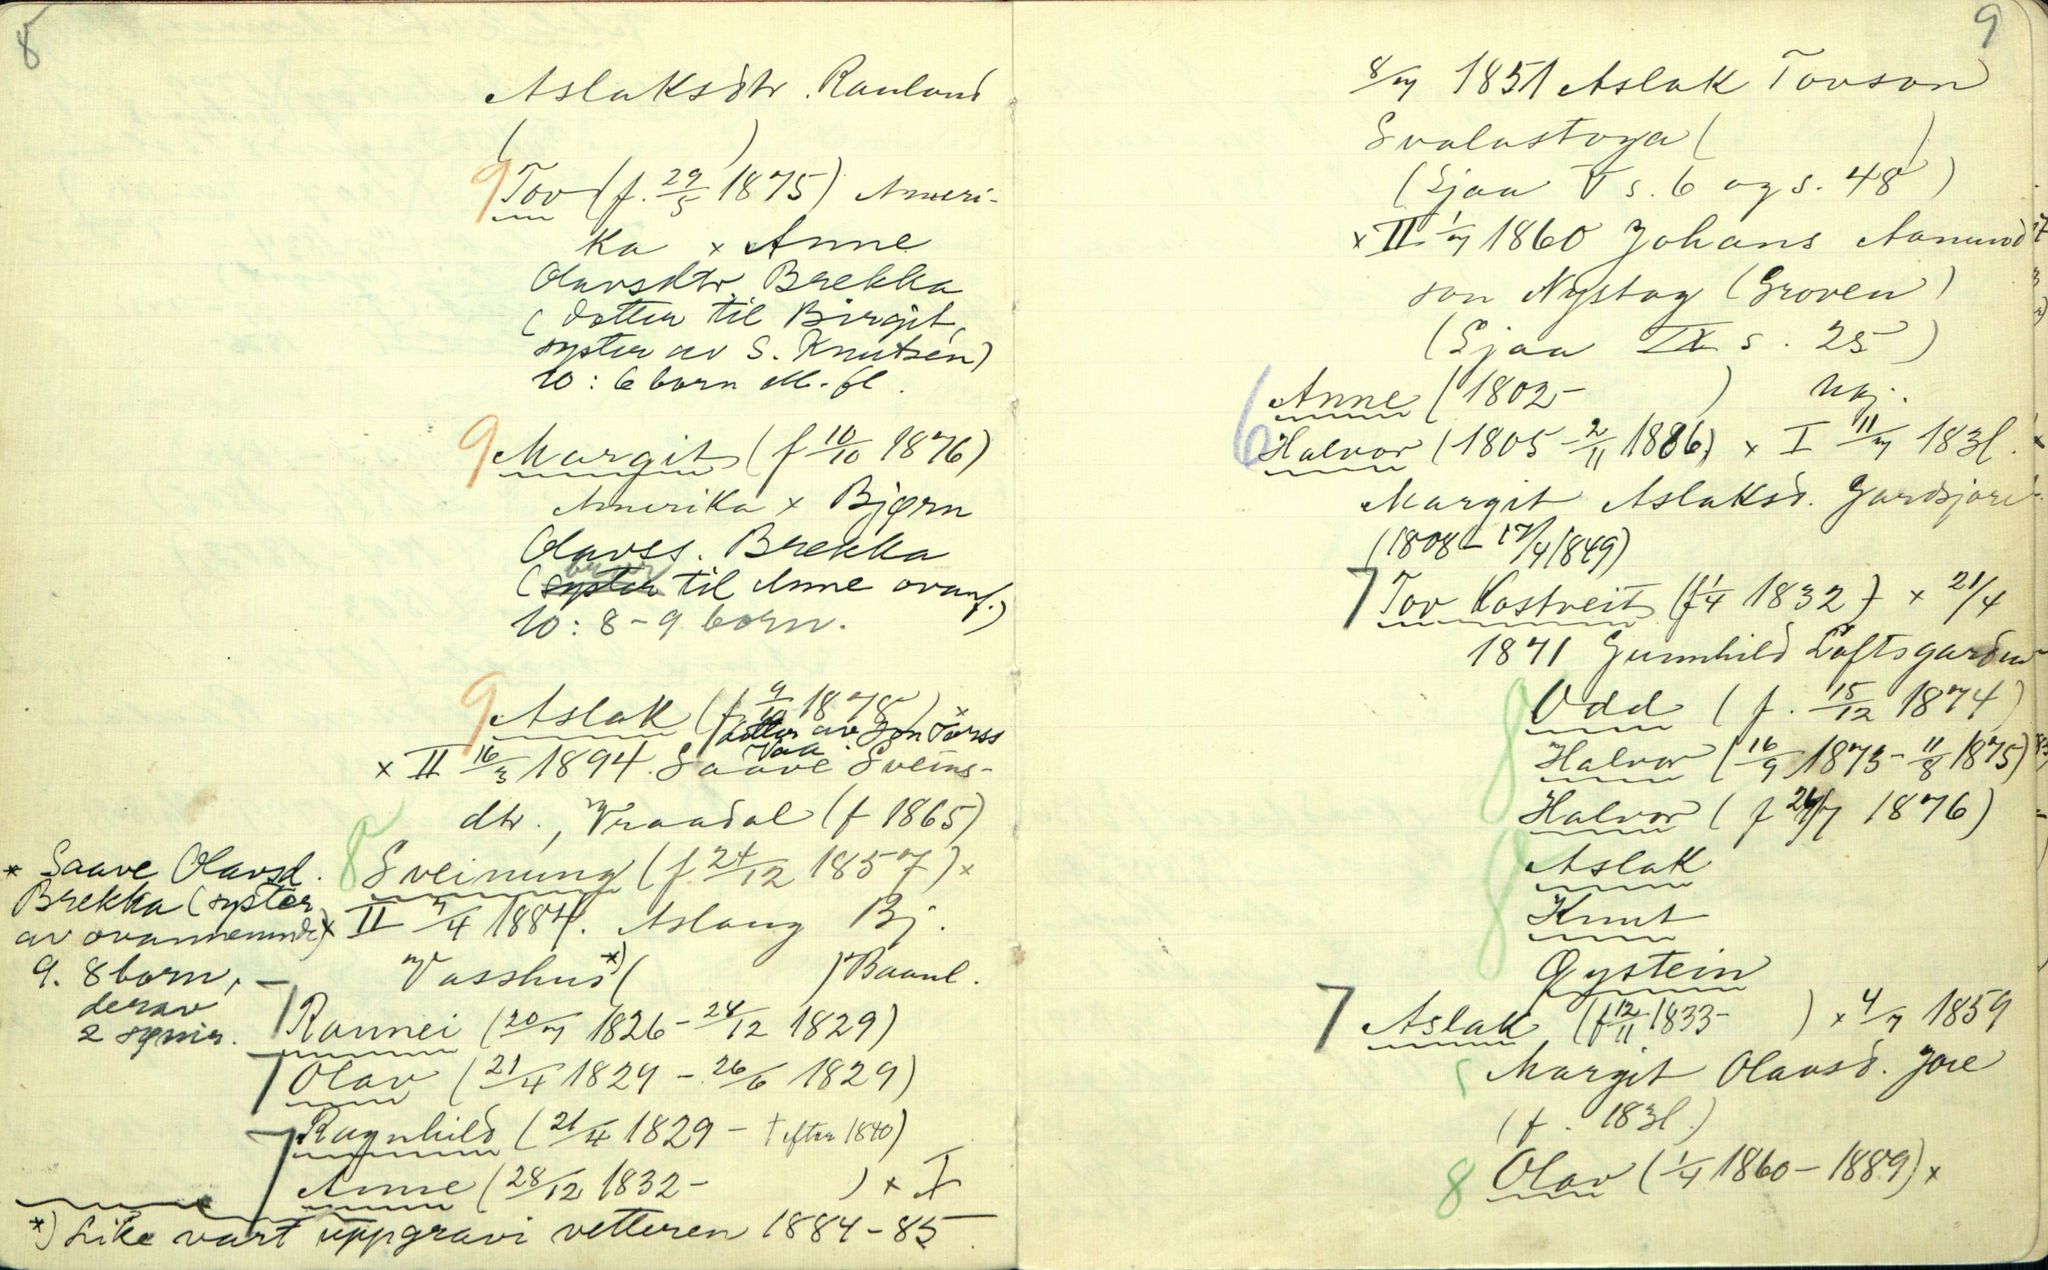 8
Aslaksdtr. Rauland
( )
9 Tov (f. 29/5 1875) Ameri-
ka × Anne
Olavsdtr. Brekka
(dotter til Birgit,
syster av S. Knutsen)
10: 6 born M. fl.
9 Margit (f 10/10 1876)
Amerika × Bjørn
Olavss. Brekka
(syster til Anne ovanf.)
10: 8-9 born.
9 Aslak (f 9/10 1878) ×
dotter av Jon Torss
Vaa
× II 16/3 1894. Saave Sveins-
dtr., Vraadal (f 1865)
8 Sveinung (f. 24/12 1857) ×
II 7/4 1884. Aslaug Bj.
Vasshus *) ( ) Baanl.
* Saave Olavsd.
Brekka (syster
av ovannemnde) ×
9. 8 born,
derav
2 syner.
7 Rannei (20/7 1826 - 24/12 1829)
7 Olav (21/4 1829 - 26/6 1829)
Ragnhild (21/4 1829 - † efter 1840)
7 Anne (28/12 1832 - ) × I
*) Like vart uppgravi vetteren 1884-85
9
8/7 1851 Aslak Tovson
Svalastoga ( )
(Sjaa V s. 6 og s. 48)
× II 1/7 1860 Johans Aamund
son Nystog (Groven)
(Sjaa IX s. 25)
6 Anne (1802 - ) ug.
Halvor (1805 - 2/11 1886) × I 11/7 1831.
Margit Aslaksd. Gardsjord
(1808 - 17/4 1849)
7 Tov Kostveit (f 1/4 1832) × 21/4
1871 Gunnhild Loftsgarden
8 Odd (f. 15/12 1874)
Halvor (16/9 1873 - 11/8 1875)
Halvor (f 24/7 1876)
8 Aslak
Knut
Øystein
7 Aslak (f 12/11 1833 - ) × 4/7 1859
Margit Olavsd. Jore
(f. 1831.)
8 Olav (1/4 1860 - 1889) ×